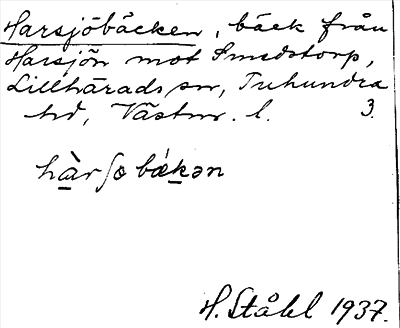 Harsjöbäcken, bäck från
Harsjön mot Smedstorp,
Lillhärads sn, Tuhundra
hd, Västm. l. 3.
hàrʃo bákən
H. Ståhl 1937.